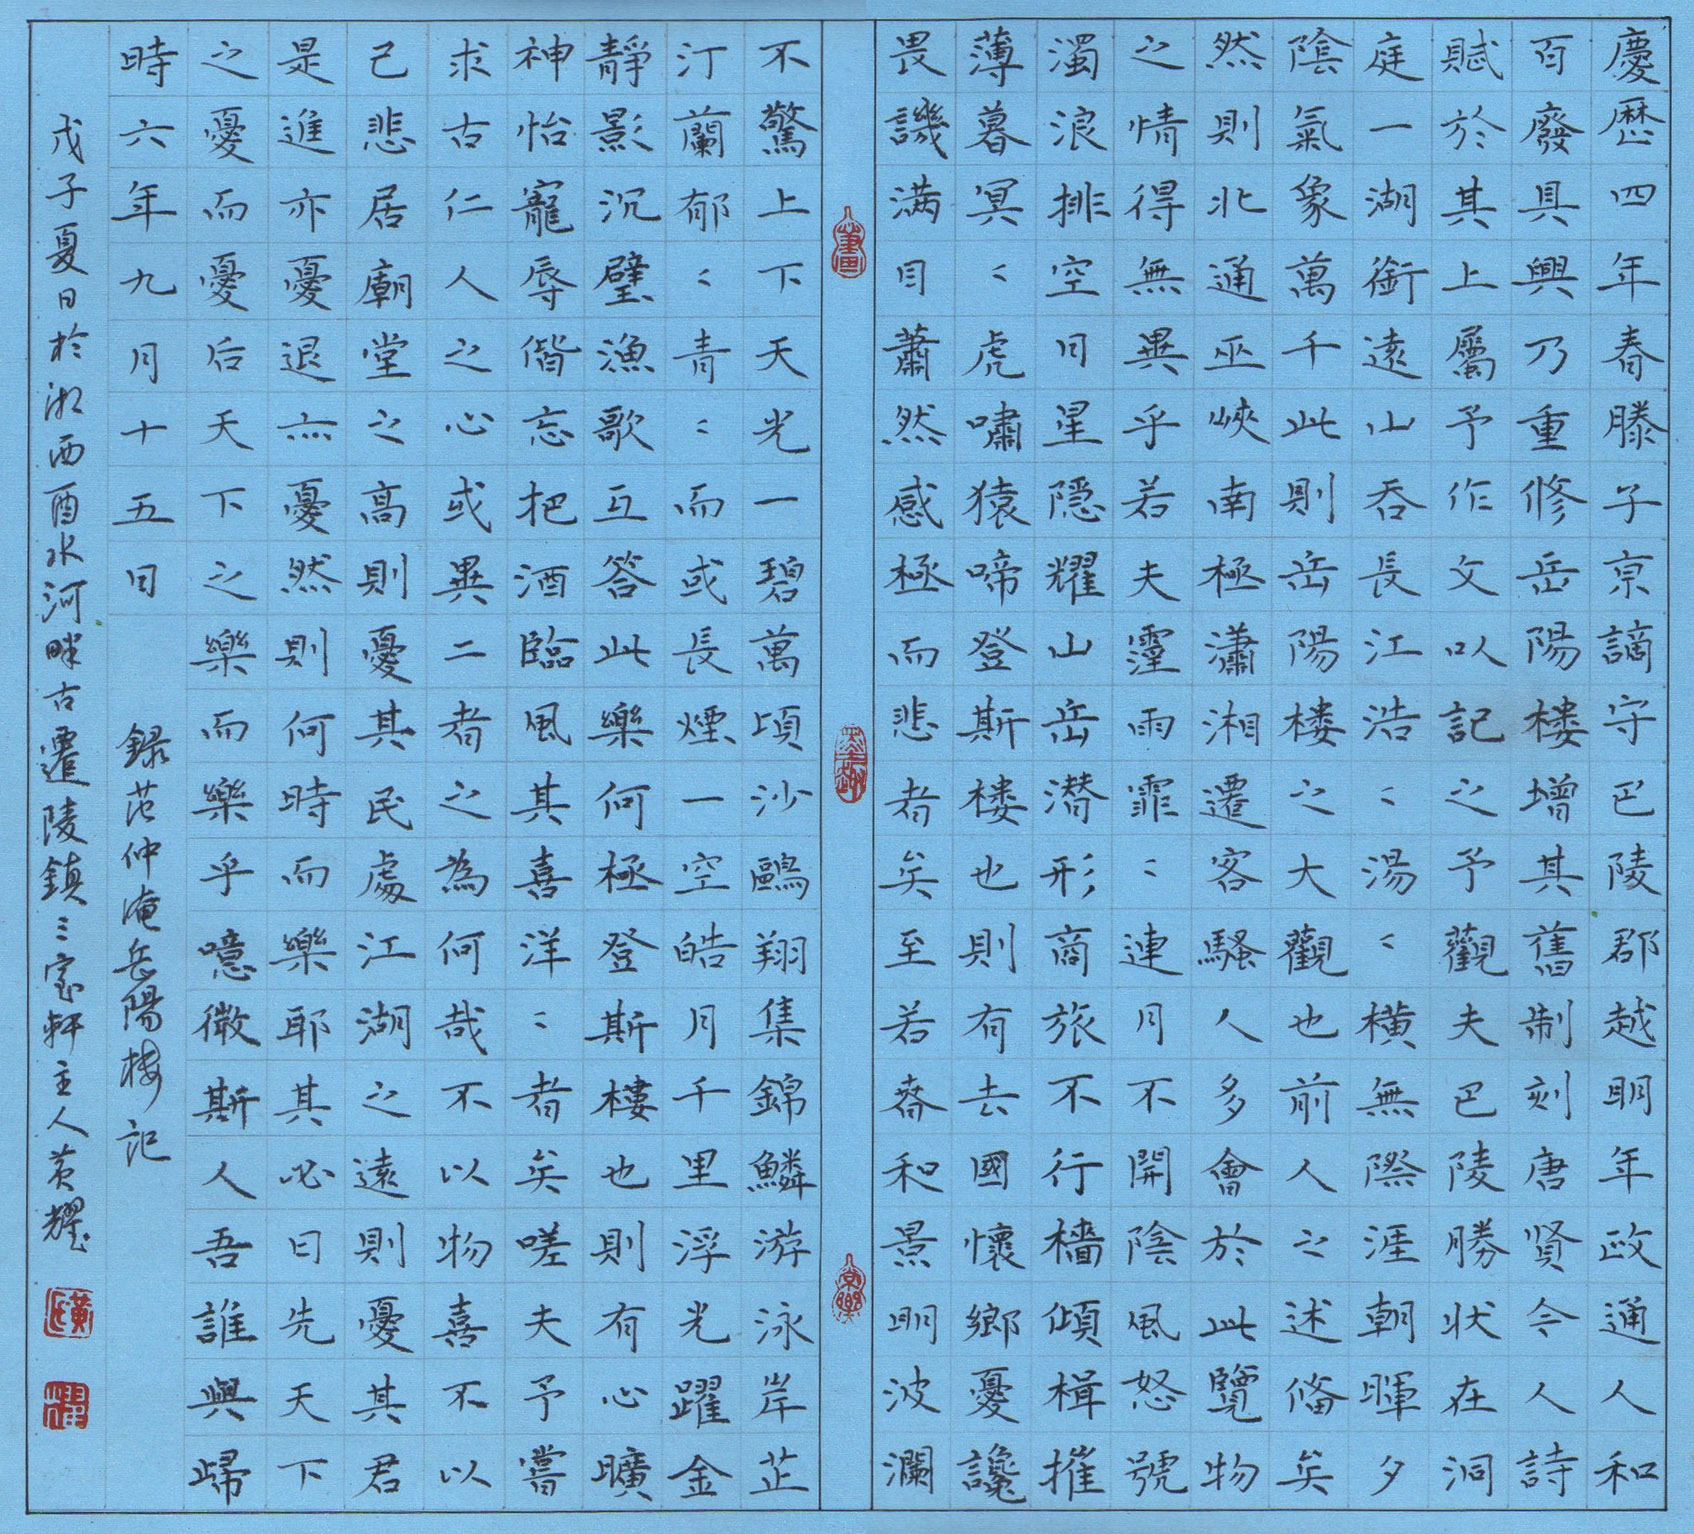 慶歷四年春滕子京謫守巴陵郡越明年政通人和
百廢具興乃重修岳陽楼增其舊制刻唐贤今人詩
賦於其上屬予作文以記之予觀夫巴陵勝状在洞
庭一湖銜遠山吞長江浩〻湯〻橫無際涯朝暉夕
陰氣象萬千此則岳陽楼之大觀也前人之述俻矣
然則北通巫峽南極瀟湘遷客騷人多會於此覽物
之情得無異乎若夫霪雨霏〻連月不開陰風怒號
濁浪排空日星隱耀山岳潜形商旅不行檣傾楫摧
薄暮冥〻虎嘯猿啼登斯楼也則有去國懷鄉憂讒
畏譏满目蕭然感極而悲者矣至若春和景明波瀾
不驚上下天光一碧萬頃沙鷗翔集錦鱗游泳岸芷
汀蘭郁〻青〻而或長煙一空皓月千里浮光躍金
靜影沉璧漁歌互答此樂何極登斯樓也則有心曠
神怡寵辱偕忘把酒臨風其喜洋〻者矣嗟夫予嘗
求古仁人之心或異二者之為何哉不以物喜不以
己悲居廟堂之高則憂其民處江湖之遠則憂其君
是進亦憂退亦憂然則何時而樂耶其必曰先天下
之憂而憂后天下之樂而樂乎噫微斯人吾誰與歸
時六年九月十五日
録范仲淹岳陽楼記
戊子夏日於湘西酉水河畔古遷陵鎮三宝軒主人黄耀